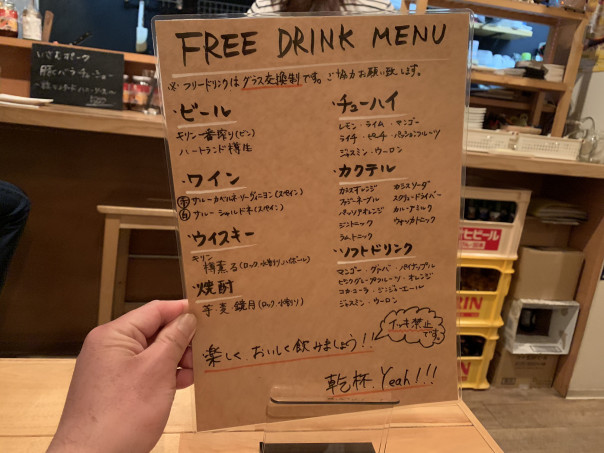 FREE DRINK MENU
※フリードリンクはグラス交換制です。ご協力お願い致します。
・ビール
キリン一番搾り(ビン)
ハートランド樽生
・ワイン
赤 ブルーカベルネソーヴィニヨン(スペイン)
白 ブルー シャルドネ(スペイン)
・ウイスキー
キリン
樽薫る(ロック、水割り、ハイボール)
・焼酎
芋・麦・鏡月(ロック、水割り)
・チューハイ
レモン・ライム・マンゴー
ライチ・ピーチ・パッションフルーツ
ジャスミン・ウーロン
・カクテル
カシスオレンジ カシスソーダ
ファジーネーブル スクリュードライバー
パッソアオレンジ カルーアミルク
ジントニック ウォッカトニック
ラムトニック
・ソフトドリンク
マンゴー・グァバ・パイナップル
ピンクグレープフルーツ・オレンジ
コカ・コーラ・ジンジャーエール
ジャスミン・ウーロン
イッキ禁止
です。
楽しく、おいしく飲みましょう!!
乾杯、Yeah!!!
豚バラチャーシュー